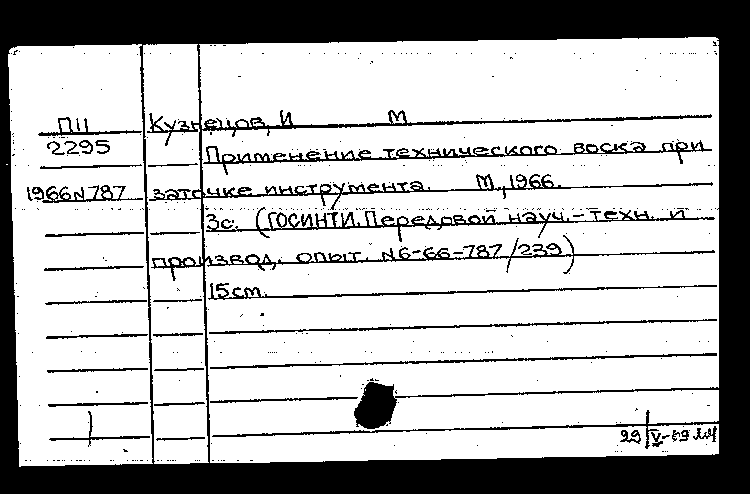 П11 Кузнецов, И М
2295 Применение технического воска при
1966 N 787 заточке инструмента. М., 1966.
3с. (ГОСИНТИ. Передовой науч.-техн. и
производ. опыт. N6-66-787/239)
15cm.
29 V-69